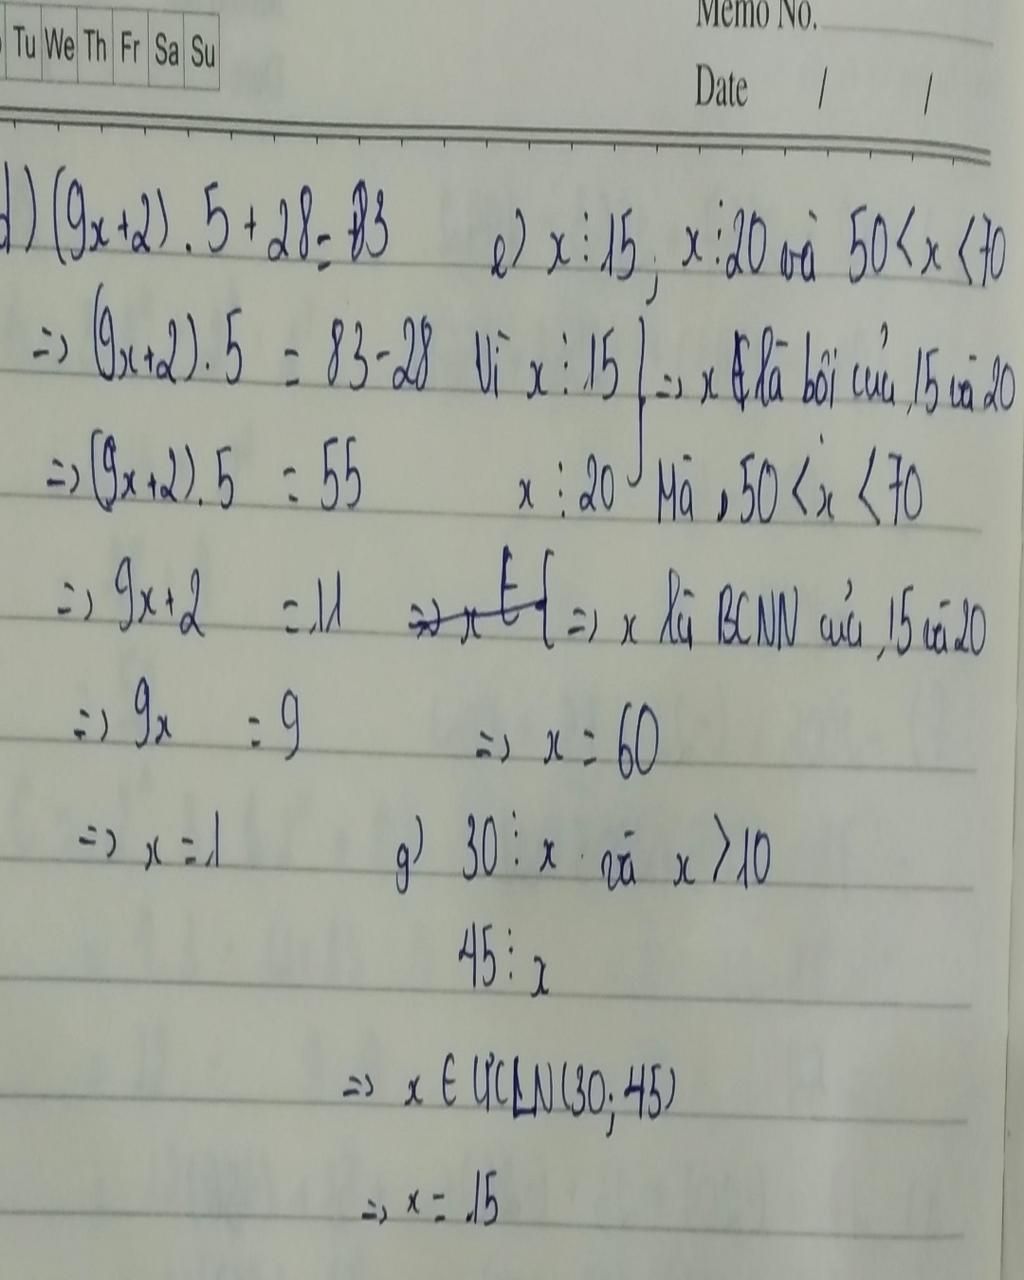 Tu We Th Fr Sa Su
Memo No.
Date / /
d) (9x+2).5+28=83
=> (9x+2).5 = 83-28
=> (9x+2).5 = 55
=> 9x+2 = 11
=> 9x = 9
=> x = 1
e) x⋮15, x⋮20 và 50<x<70
Vì x⋮15 } => x là bội của 15 và 20
x⋮20 Mà 50<x<70
=> x là BCNN của 15 và 20
=> x = 60
g) 30⋮x và x>10
45⋮x
=> x ∈ ƯCLN(30; 45)
=> x = 15